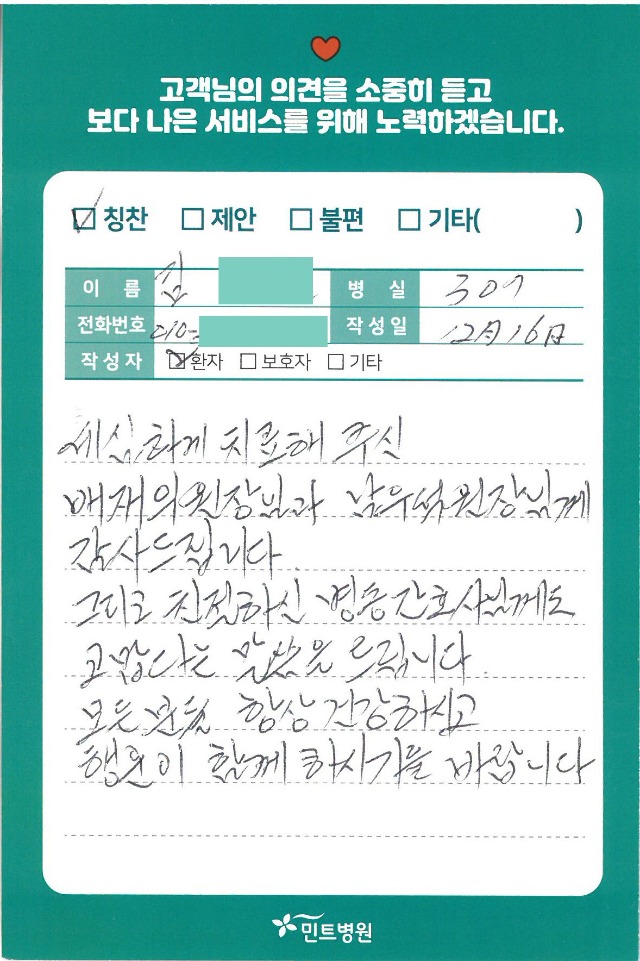 고객님의 의견을 소중히 듣고
보다 나은 서비스를 위해 노력하겠습니다.
칭찬 제안 불편 기타( )
이 름 김 병 실 307
전화번호 010- 작성일 12月 16日
작성자 환자 보호자 기타
세심하게 치료해 주신
배재익원장님과 남우석원장님께
감사드립니다.
그리고 친절하신 병동간호사님께도
고맙다는 말씀을 드립니다.
모든 분들 항상 건강하시고
행운이 함께 하시기를 바랍니다
민트병원